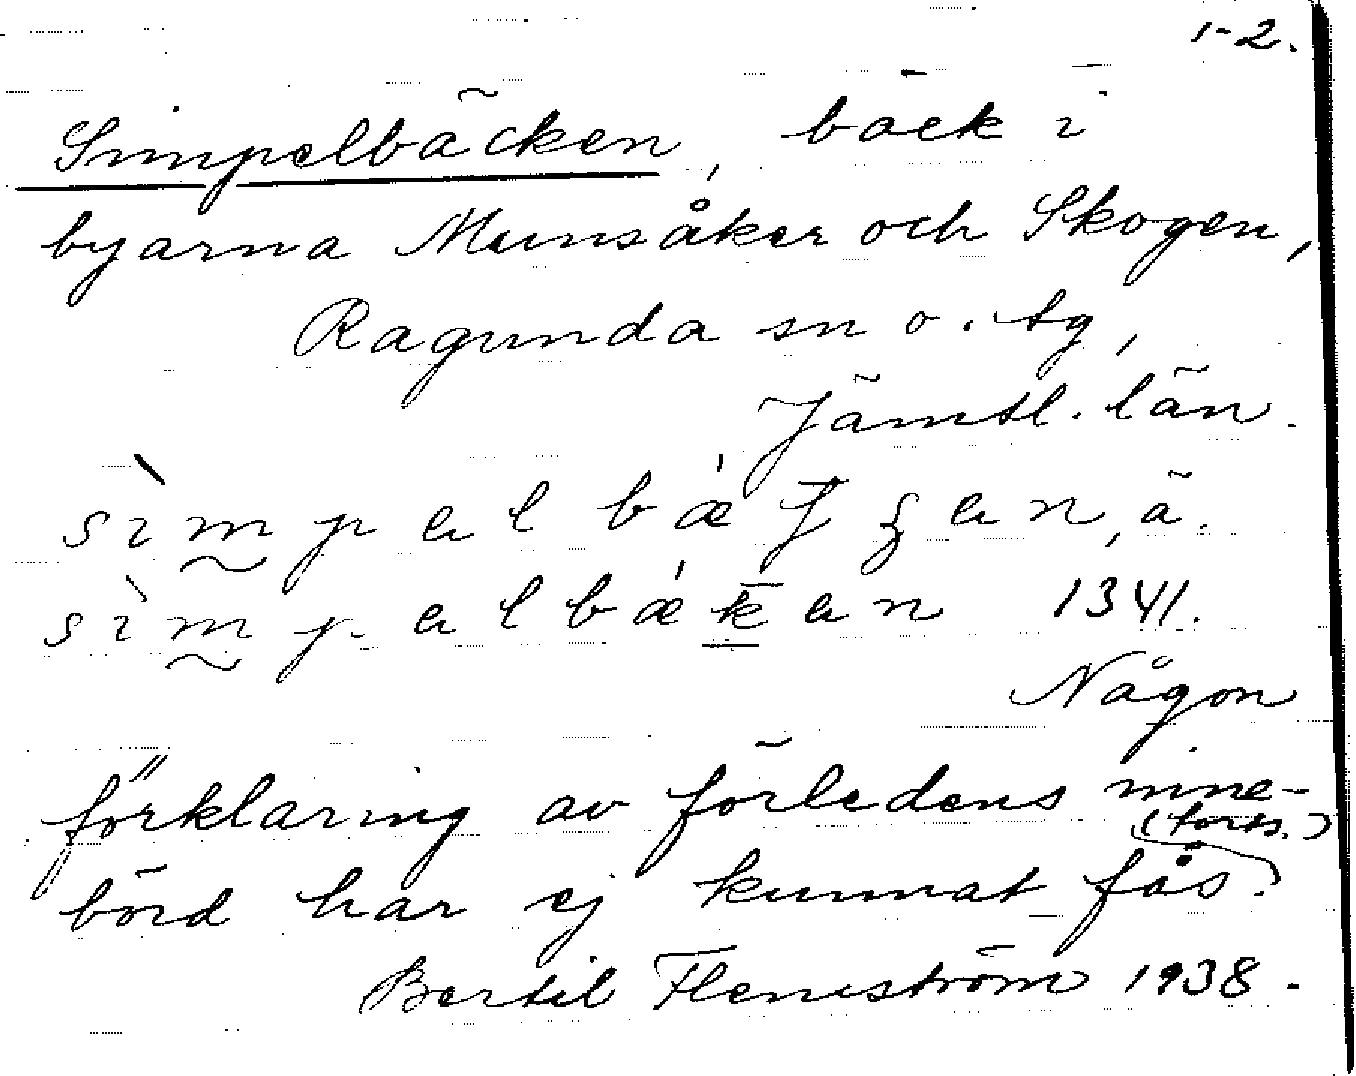 1-2.
Simpelbäcken, bäck i
byarna Munsåker och Skogen,
Ragunda sn o. tg,
Jämtl. län.
sìmpəl bǽʄʒən, ä.
sìmpəlbǽkən 1341.
Någon
förklaring av förledens inne-
(forts.)
börd har ej kunnat fås.
Bertil Flemström 1938.